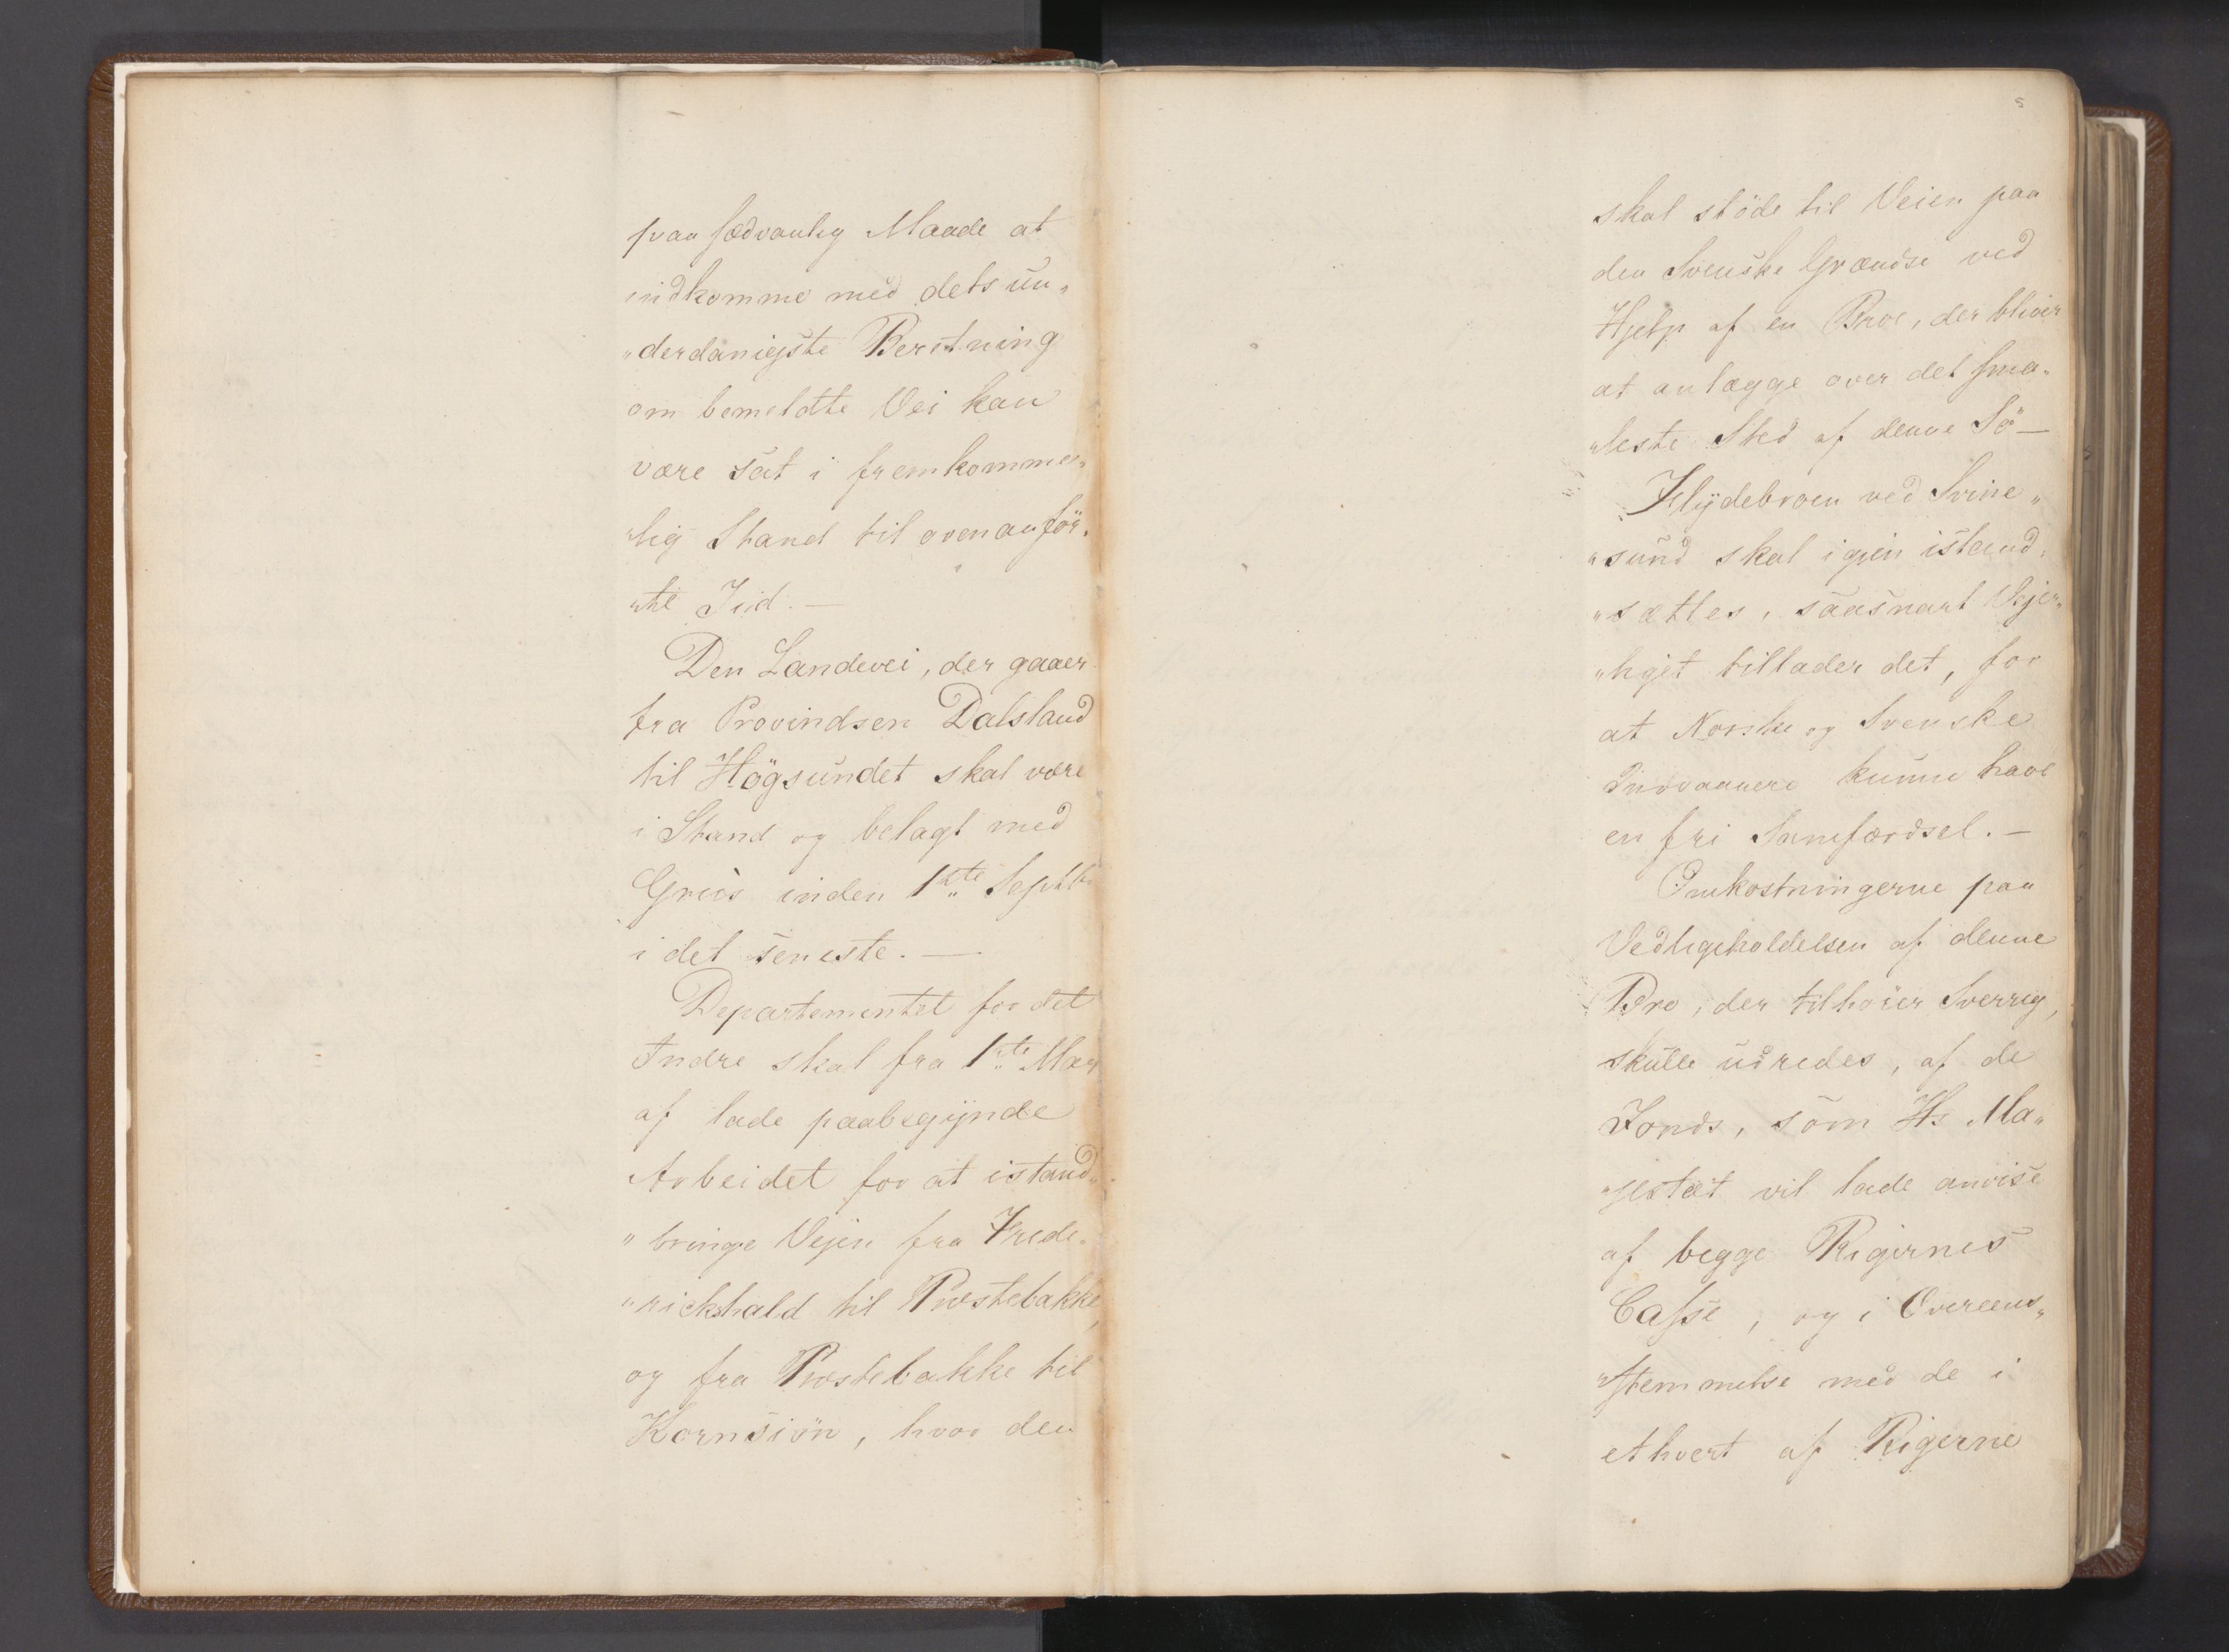 paa sædvanlig Maade at
indkomme med dets un„
„derdanigste Beretning
om bemeldte Vei kan
være sat i fremkomme„
„lig Stand til ovenanför„
„te Tid. —
Den Landevei, der gaaer
fra Provindsen Dalsland
til Högsundet skal være
i Stand og belagt med
Gruus inden 1ste Septbr
i det seneste. —
Departementet for det
Indre skal fra 1ste Mai
af lade paabegÿnde
Arbeidet for at istand„
„bringe Vejen fra Frede„
„rickshald til Præstebakke,
og fra Præstebakke til
Kornsiön, hvor den
5
skal støde til Veien paa
den Svenske Grændse ved
Hjelp af en Broe, der bliver
at anlægge over det sma„
„leste Sted af denne Sö —
Flÿdebroen ved Svine„
„sund skal igien istand„
„sættes, saasnart Vejr„
„liget tillader det, for
at Norske og Svenske
Indvaanere kunne have
en fri Samfærdsel. —
Omkostningerne paa
Vedligeholdelsen af denne
Bro, der tilhører Sverrig,
skulle udredes, af de
Fonds, som Hs Ma„
„jestæt vil lade anvise
af begge Rigernes
Casse, og i Overeens„
„stemmelse med de i
ethvert af Rigerne